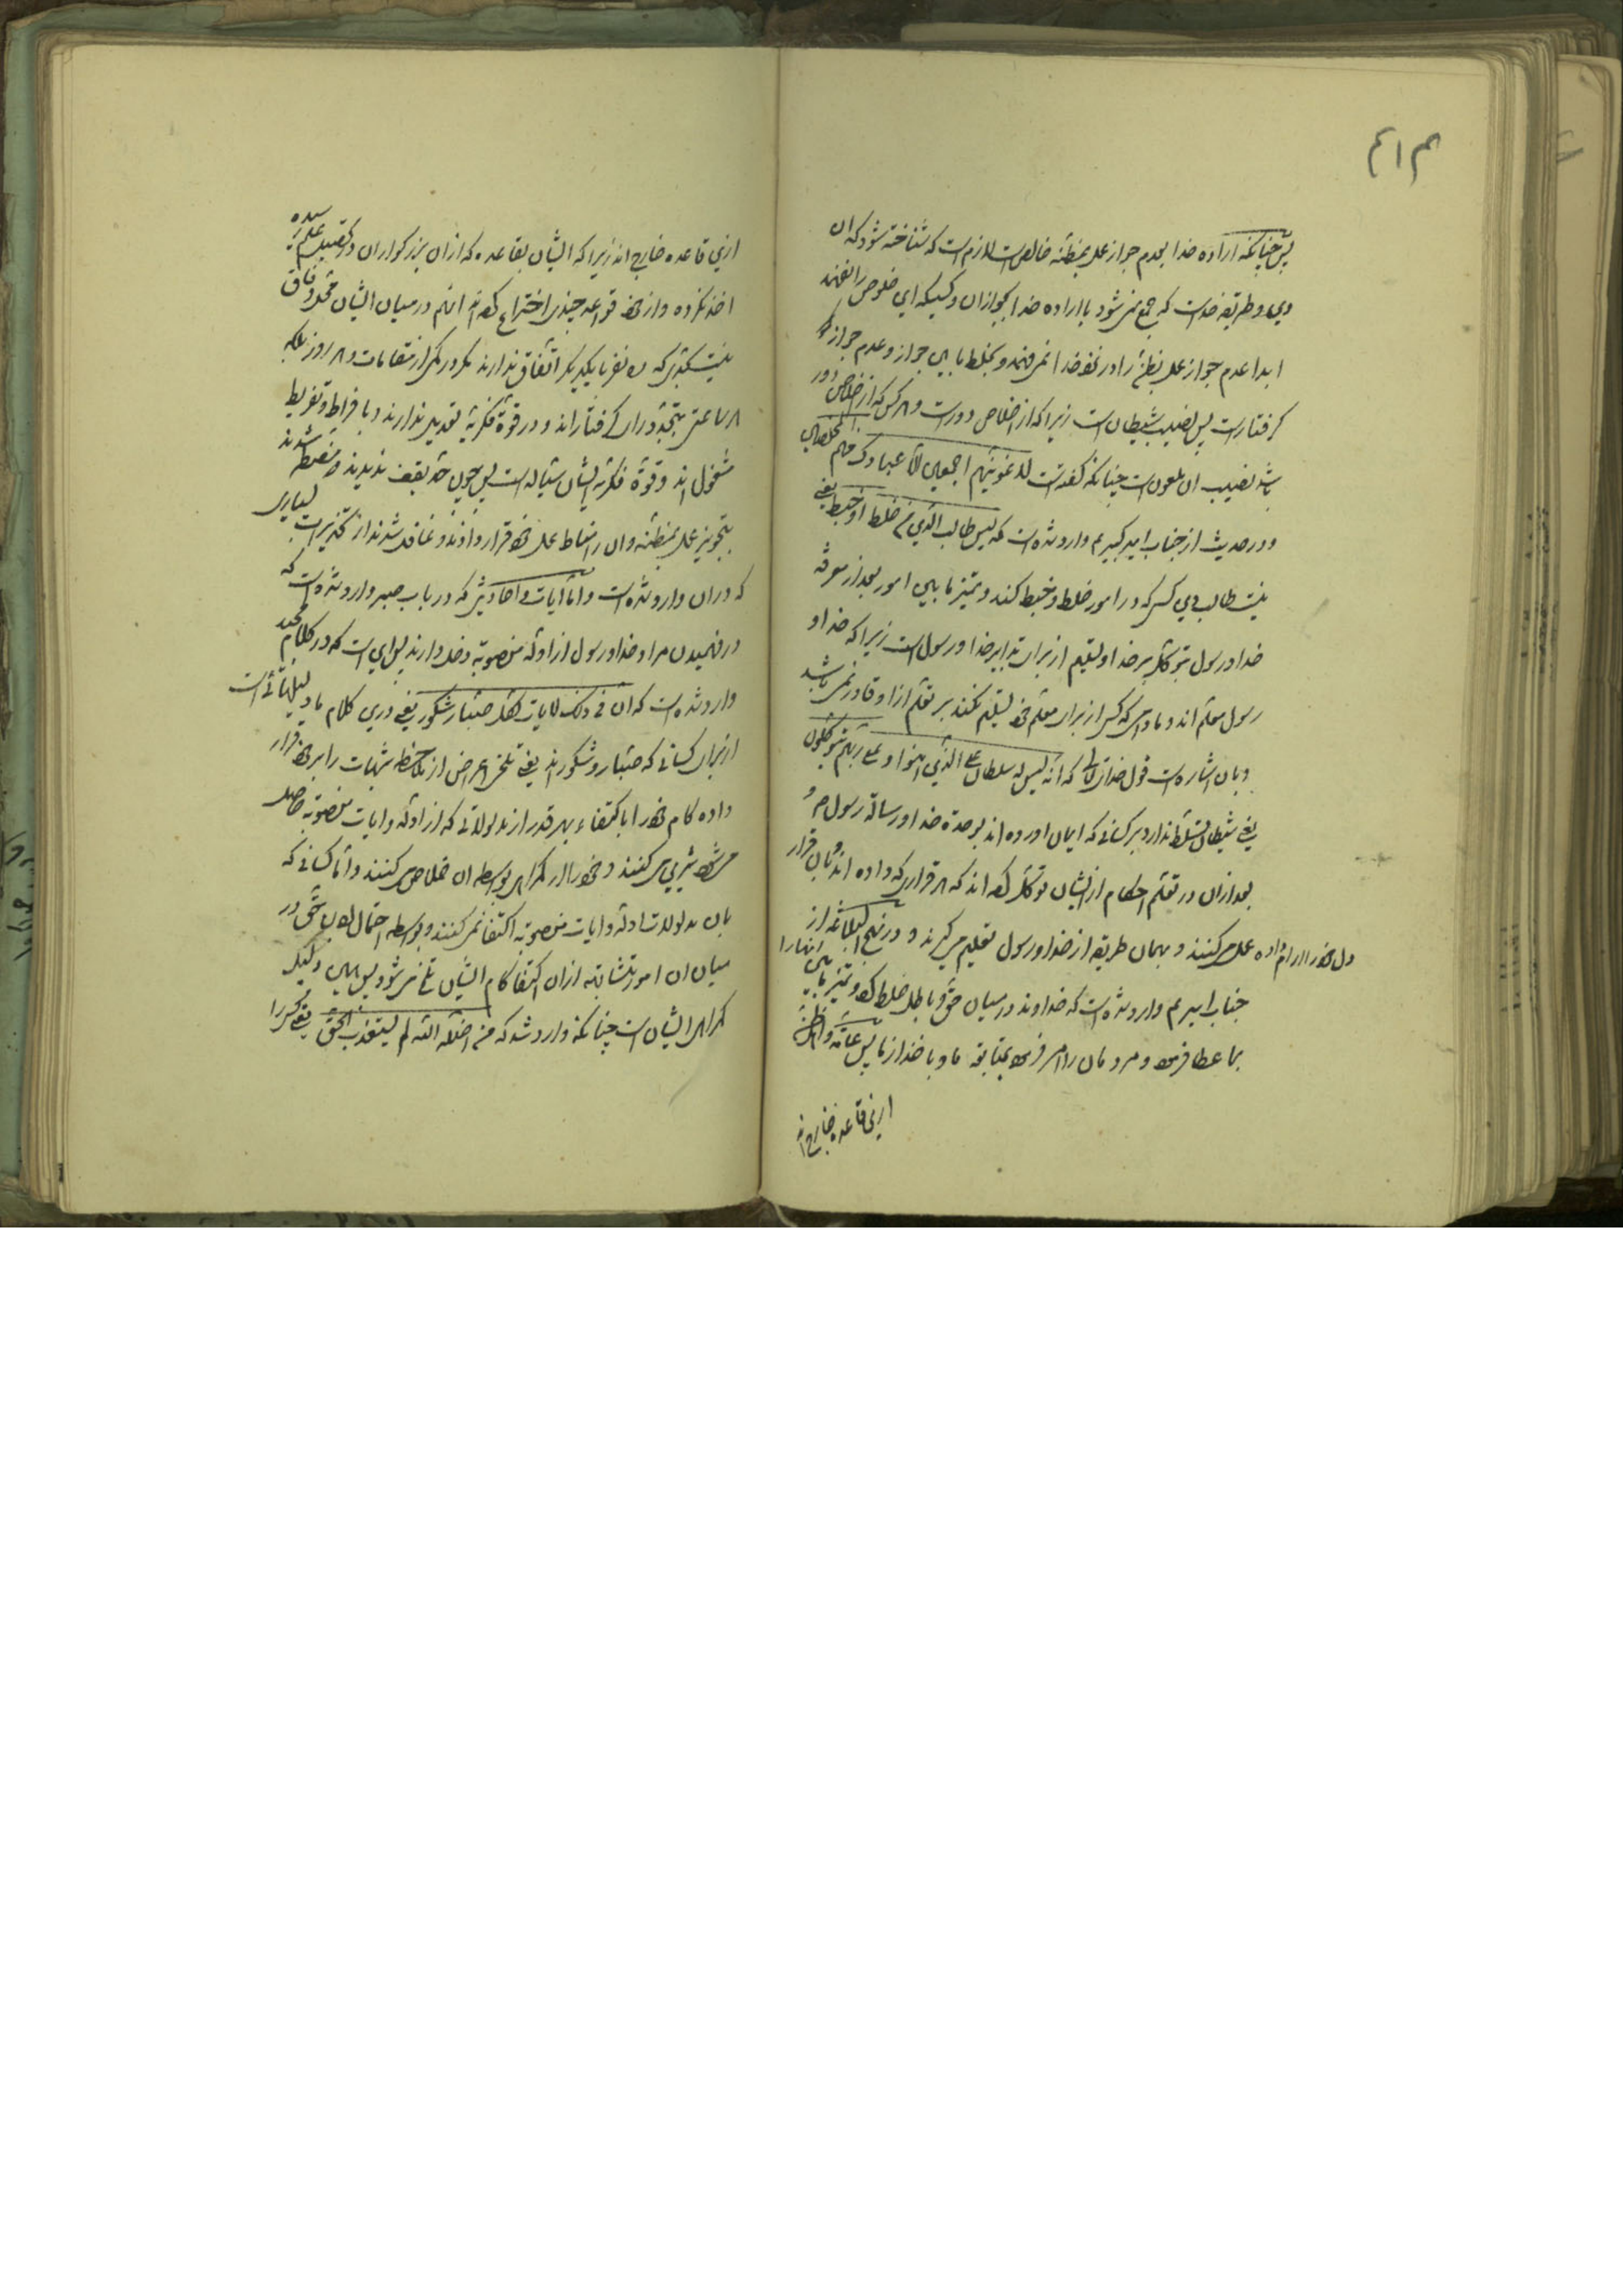 پس چنانکه اراده خدا بعدم جواز عمل بمظنّه خالص است لازم است که شناخته شود که ان
دین و طریقه خداست که جمع نمی شود با اراده خدا بجواز ان و کسیکه این خلوص را نفهمد
ابدا عدم جواز عمل بظنّ را در نحو خدا نمی فهمد و بخلط ما بین جواز و عدم جواز
گرفتار است پس نصیب شیطان است زیرا که از اخلاص دور است و هر کس که از اخلاص دور
باشد نصیب ان ملعون است چنانکه گفته است لاغوینهم اجمعین الا عبادک منهم المخلصین
و در حدیث از جناب امیر کبیر ع وارد شده است که لیس طالب الدین من خلط او خبط یعنی
نیست طالب دین کسی که در امور خلط و خبط کند و تمیز ما بین امور بعد از معرفة
خدا و رسول بتوکّل بر خدا و تسلیم از برای تدابیر خدا و رسول است زیرا که خدا و
رسول معلّم اند و مادامی که کسی از برای معلّم خود تسلیم نکند بر تعلّم از او قادر نمی باشد
و بان اشاره است قول خدایتعالی که انّه لیس له سلطان علی الذین امنوا و علی ربّهم یتوکلون
یعنی شیطان تسلّط ندارد بر کسانی که ایمان اورده اند بوحدة خدا و رسالة رسول ص و
بعد از ان در تعلّم احکام از ایشان توکّل کرده اند که هر قراری که داده اند بان قرار
دل خود را ارام داده عمل می کنند و بهمان طریقه از خدا و رسول تعلیم می گیرند و در نهج البلاغه از
جناب امیر ع وارد شده است که خداوند در میان حقّ و باطل خلط کرده و تمیز ما بین انها را
بما عطا فرموده و مردمان را امر فرموده بمتابعة ما و با خدا از ما پس عامّه و اهل ظنّ
ازین قاعده خارج اند
ازین قاعده خارج اند زیرا که ایشان بقاعده که از ان بزرگواران در کیفیت عمل رسیده
اخذ نکرده و از خود قواعد چندی اختراع کرده اند انهم در میان ایشان محلّ وفاق
نیست بحدّی که دو نفر با یکدیگر اتّفاق ندارند مگر در مکرّر از مقامات و هر روز بلکه
هر ساعتی بتجدّد رای گرفتار اند و در قوّة فکریّه تعدیل ندارند و بافراط و تفریط
مشغول اند و قوّة فکریّه ایشان سیّاله است پس چون حدّ یقف ندیدند منضبط شدند
بتجویز عمل بمظنّه و ان را مناط عمل خود قرار دادند و غافل شدند از تحذیرات بسیاری
که در ان وارد شده است و امّا ایات و احادیثی که در باب صبر وارد شده است که
در فهمیدن مراد خدا و رسول از ادلّه منصوبه دخل دارند پس این است که در کلام مجید
وارد شده است که ان فی ذلک لایات لکل صبّار شکور یعنی درین کلام ما دلیلهائی است
از برای کسانی که صبّار و شکور اند یعنی تلخی اعراض از ملاحظه شبهات را بر خود قرار
داده کام خود را باکتفاء بهر قدر از مدلولاتی که از ادلّه و ایات منصوبه حاصل
می شود شیرین می کنند و خود را از گمراهی بواسطه ان خلاص می کنند و امّا کسانی که
بان مدلولات ادلّه و ایات منصوبه اکتفا نمی کنند و بواسطه احتمال حقّ در
میان ان امور متشابهه از ان اکتفا کام ایشان تلخ می شود پس همین دلیل
گمراهی ایشان است چنانکه وارد شد که من اضلّه اللّه لم یستعذب الحقّ یعنی کسی را